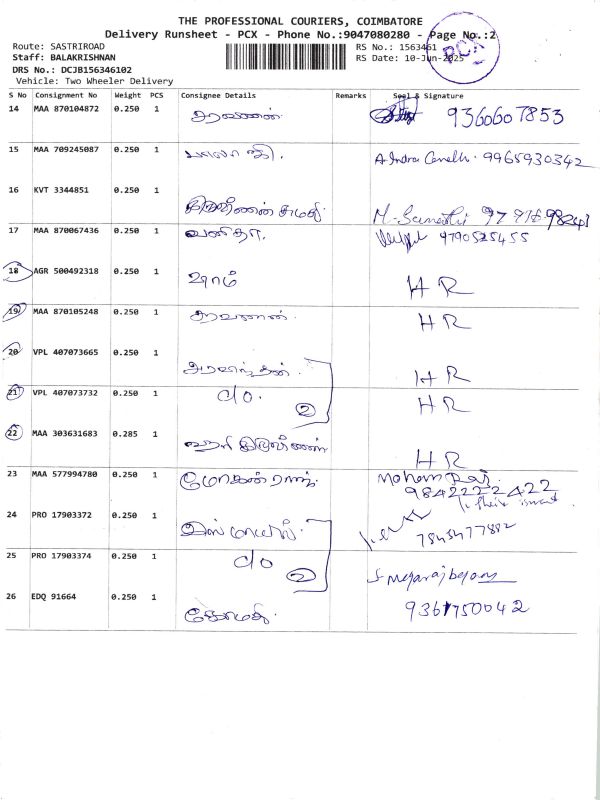 THE PROFESSIONAL COURIERS, COIMBATORE
Delivery Runsheet - PCX - Phone No.:9047080280 - Page No.:2
Route: SASTRIROAD
RS No.: 1563461
Staff: BALAKRISHNAN
RS Date: 10-Jun-2025
PCX
DRS No.: DCJB156346102
Vehicle: Two Wheeler Delivery
S No Consignment No Weight PCS Consignee Details Remarks Seal & Signature
14 MAA 870104872 0.250 1 சரவணன் 9360607853
15 MAA 709245087 0.250 1 பாலாஜி. A. Indra Gandhi. 9965930342
16 KVT 3344851 0.250 1
17 MAA 870067436 0.250 1 வனிதா. 9790525455
18 AGR 500492318 0.250 1 ஷாம் H R
19 MAA 870105248 0.250 1 சரவணன். H R
20 VPL 407073665 0.250 1 H R
21 VPL 407073732 0.250 1 c/o. 2 H R
22 MAA 303631683 0.285 1 H R
23 MAA 577994780 0.250 1 மோகன்ராஜ். Mohan Raj.
9842222422
24 PRO 17903372 0.250 1 இஸ்மாயில்.
25 PRO 17903374 0.250 1 c/o 2
26 EDQ 91664 0.250 1 கோமதி. 9361750042